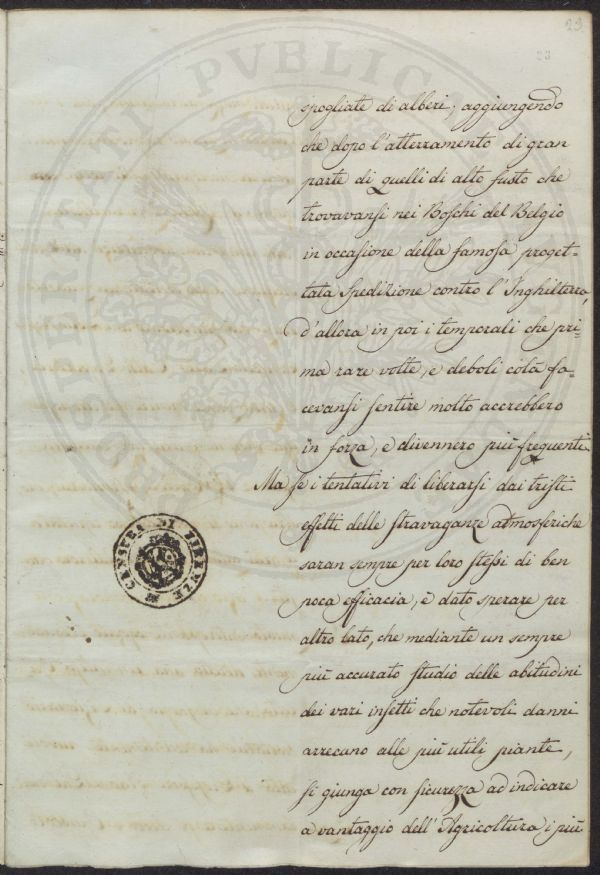 23
23
spogliate di alberi; aggiungendo
che dopo l'atterramento di gran
parte di quelli di alto fusto che
trovavansi nei Boschi del Belgio
in occasione della famosa proget-
tata Spedizione contro l'Inghilterra,
d'allora in poi i temporali che pri-
ma rare volte, e deboli colà fa-
cevansi sentire molto accrebbero
in forza, e divennero più frequenti.
Ma se i tentativi di liberarsi dai tristi
effetti delle stravaganze atmosferiche
saran sempre per loro stessi di ben
poca efficacia, è dato sperare per
altro lato, che mediante un sempre
più accurato studio delle abitudini
dei vari insetti che notevoli danni
arrecano alle più utili piante,
si giunga con sicurezza ad indicare
a vantaggio dell'Agricoltura i più
CENSURA DI FIRENZE